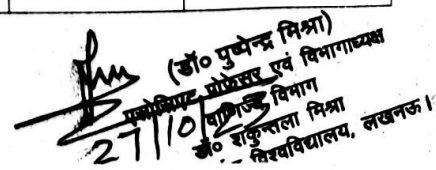 (डॉ० पुष्पेन्द्र मिश्रा)
एसोसिएट प्रोफेसर एवं विभागाध्यक्ष
वाणिज्य विभाग
डॉ० शकुन्तला मिश्रा
विश्वविद्यालय, लखनऊ।
27/10/23